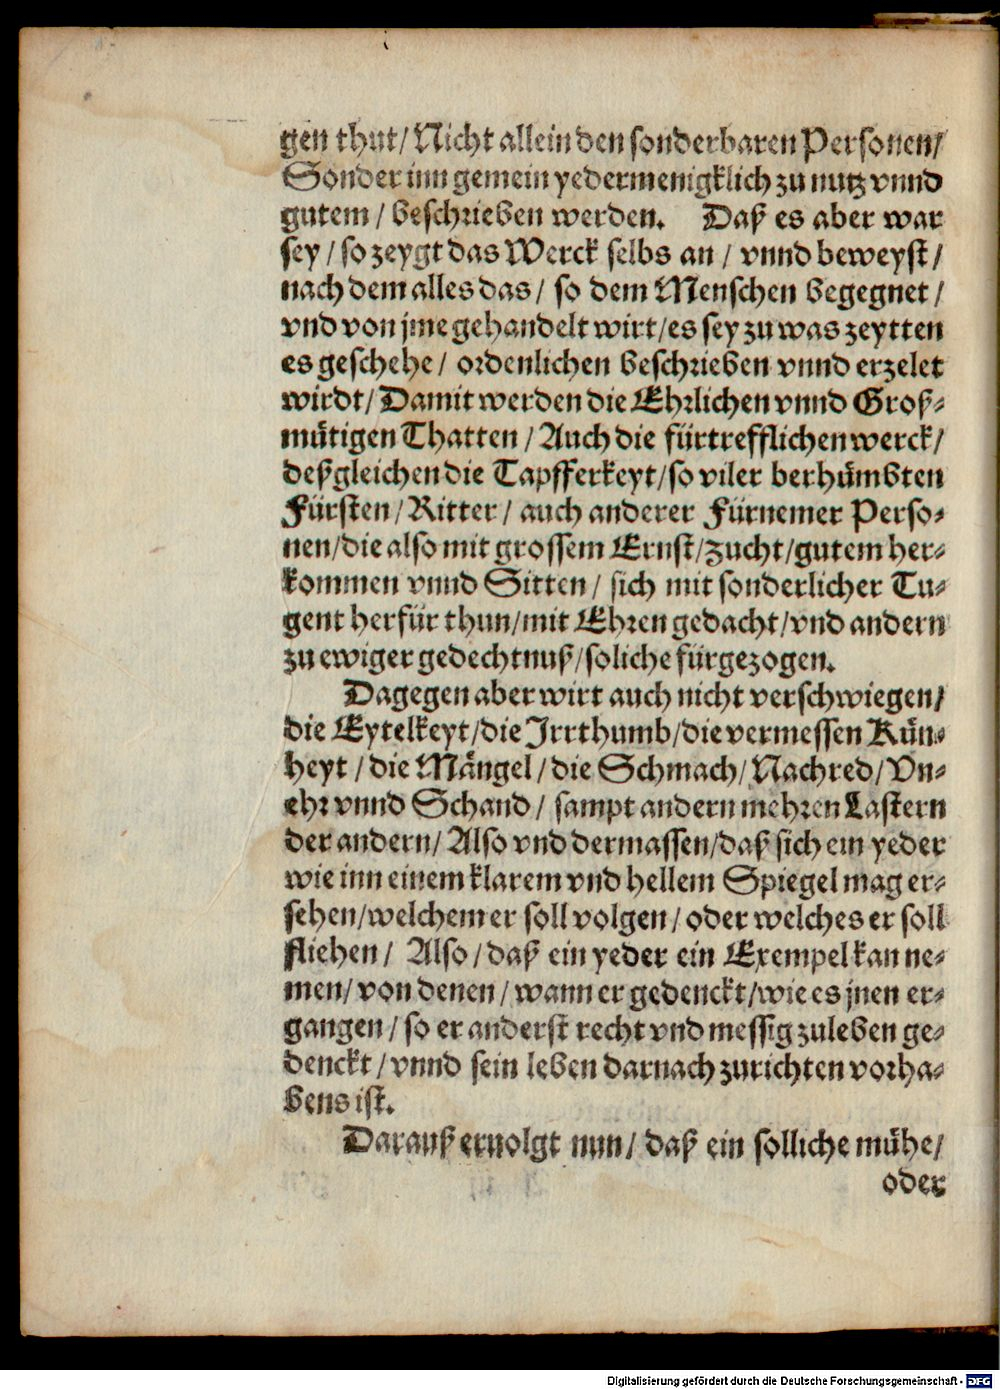 gen thut/Nicht allein den sonderbaren Personen/
Sonder inn gemein yedermenigklich zu nutz vnnd
gutem / beschrieben werden. Daß es aber war
sey / so zeygt das Werck selbs an / vnnd beweyst /
nach dem alles das / so dem Menschen begegnet /
vnd von jme gehandelt wirt/es sey zu was zeytten
es geschehe / ordenlichen beschrieben vnnd erzelet
wirdt/ Damit werden die Ehrlichen vnnd Groß-
mütigen Thatten / Auch die fürtrefflichen werck/
deßgleichen die Tapfferkeyt/so viler berhümbten
Fürsten / Ritter / auch anderer Fürnemer Perso-
nen/die also mit grossem Ernst/zucht/gutem her-
kommen vnnd Sitten / sich mit sonderlicher Tu-
gent herfür thun/mit Ehren gedacht/vnd andern
zu ewiger gedechtnuß/soliche fürgezogen.
Dagegen aber wirt auch nicht verschwiegen/
die Eytelkeyt/die Irrthumb/die vermessen Kün-
heyt / die Mängel / die Schmach/ Nachred/ Vn-
ehr vnnd Schand / sampt andern mehren Lastern
der andern/ Also vnd dermassen/daß sich ein yeder
wie inn einem klarem vnd hellem Spiegel mag er-
sehen/welchem er soll volgen / oder welches er soll
fliehen / Also / daß ein yeder ein Exempel kan ne-
men/ von denen / wann er gedenckt/wie es jnen er-
gangen / so er anderst recht vnd messig zuleben ge-
denckt / vnnd sein leben darnach zurichten vorha-
bens ist.
Darauß eruolgt nun / daß ein solliche mühe/
oder
Digitalisierung gefördert durch die Deutsche Forschungsgemeinschaft - DFG